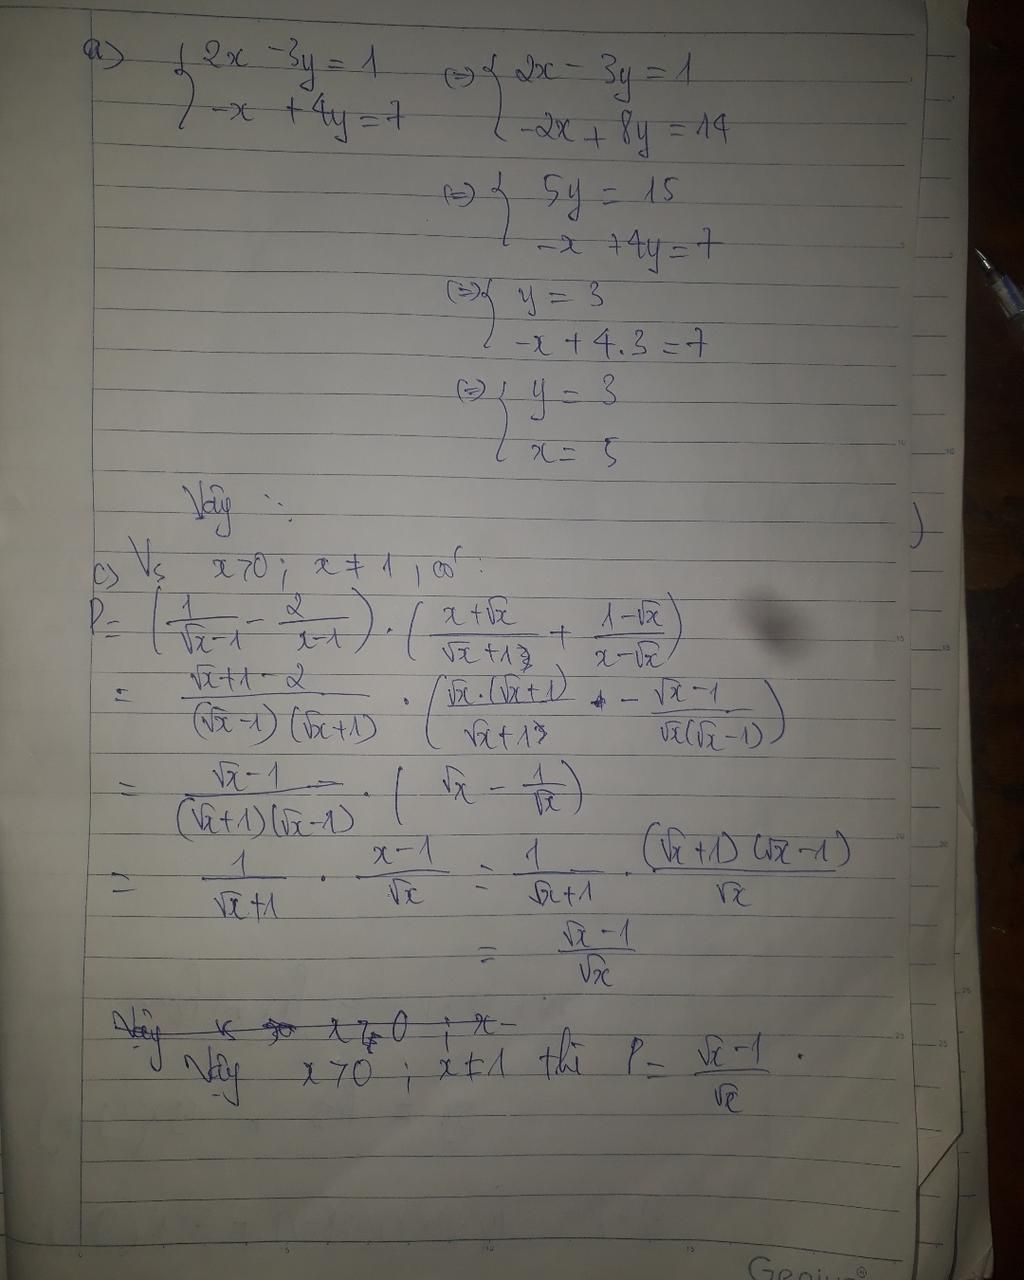 a) { 2x - 3y = 1 (=) { 2x - 3y = 1
-x + 4y = 7 -2x + 8y = 14
(=) { 5y = 15
-x + 4y = 7
(=) { y = 3
-x + 4.3 = 7
(=) { y = 3
x = 5
Vậy :.
c) Vs x>0 ; x ≠ 1 , có :
P = (1/(√x-1) - 2/(x-1)) . ((x+√x)/(√x+1) + (1-√x)/(x-√x))
= (√x+1-2)/((√x-1)(√x+1)) . ((√x.(√x+1))/(√x+1) - (√x-1)/(√x(√x-1)))
= (√x-1)/((√x+1)(√x-1)) . (√x - 1/√x)
= 1/(√x+1) . (x-1)/√x = 1/(√x+1) . ((√x+1)(√x-1))/√x
= (√x-1)/√x
Vậy x>0 ; x ≠ 1 thì P = (√x-1)/√x .